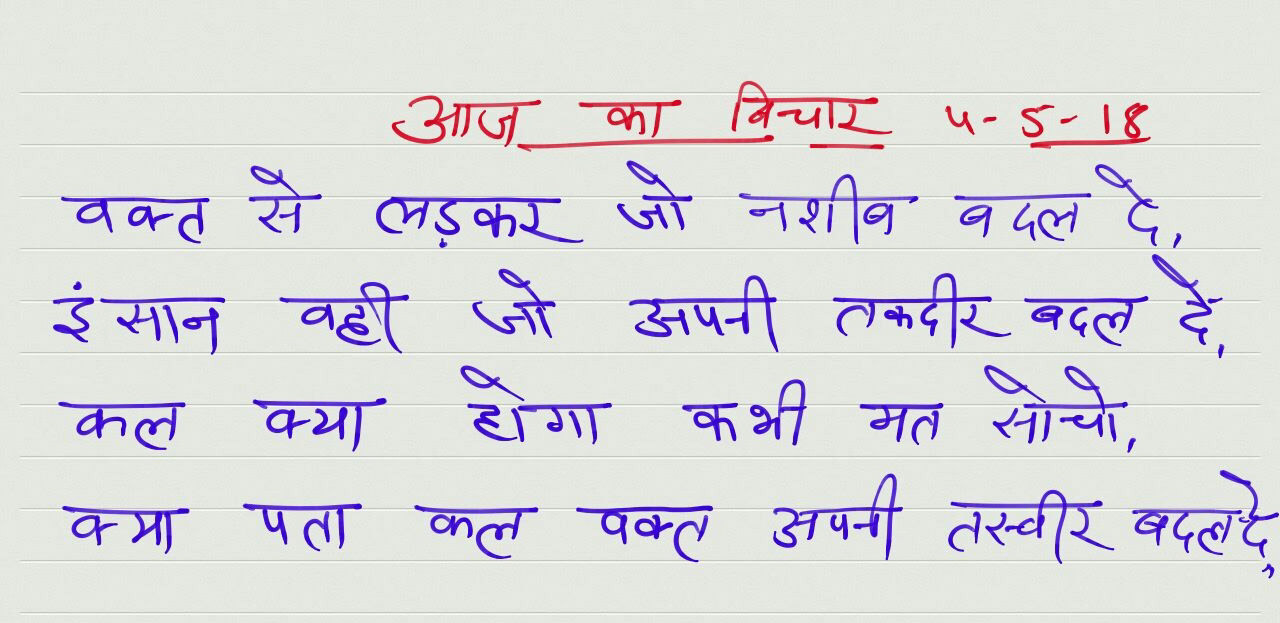 आज का विचार 4-5-18
वक्त से लड़कर जो नशीब बदल दे,
इंसान वही जो अपनी तकदीर बदल दे,
कल क्या होगा कभी मत सोचो,
क्या पता कल वक्त अपनी तस्वीर बदल दे,